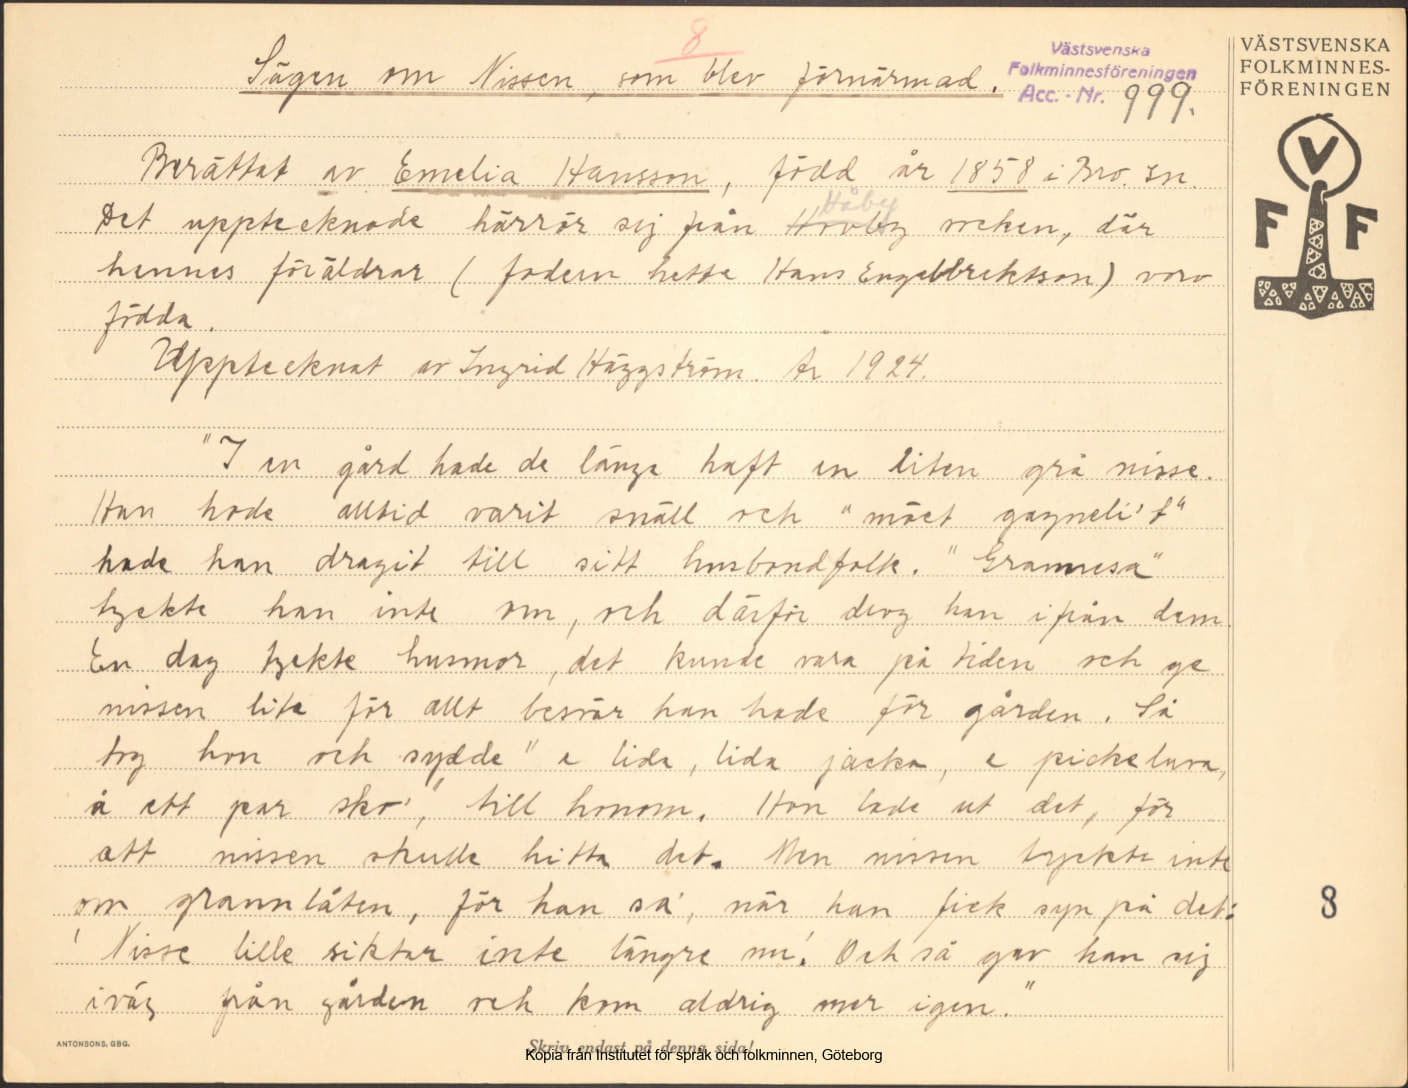 8
Sägen om Nissen, som blev förnärmad.
Västsvenska
Folkminnesföreningen
Acc. - Nr. 999.
VÄSTSVENSKA
FOLKMINNES-
FÖRENINGEN
V
F F
Berättat av Emelia Hansson, född år 1858 i Bro sn.
Håby
Det upptecknade härrör sig från socken, där
hennes föräldrar (fadern hette Hans Engelbrektson) voro
födda.
Upptecknat av Ingrid Häggström. År 1924.
"I en gård hade de länge haft en liten grå nisse.
Han hade alltid varit snäll och "möet gagneli't"
hade han dragit till sitt husbondfolk. "Grannesa"
tyckte han inte om, och därför drog han ifrån dem.
En dag tyckte husmor, det kunde vara på tiden och ge
nissen lite för allt besvär han hade för gården. Så
tog hon och sydde "e lida, lida jacka, e pickelura,
å ett par sko'," till honom. Hon lade ut det, för
att nissen skulle hitta det. Men nissen tyckte inte
om grannlåten, för han sa', när han fick syn på det:
'Nisse lille siktar inte längre nu'. Och så gav han sig
iväg från gården och kom aldrig mer igen."
8
ANTONSONS, GBG.
Skriv endast på denna sida!
Kopia från Institutet för språk och folkminnen, Göteborg